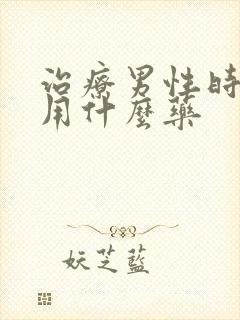 治療男性時
用什麼藥
妖芝藍